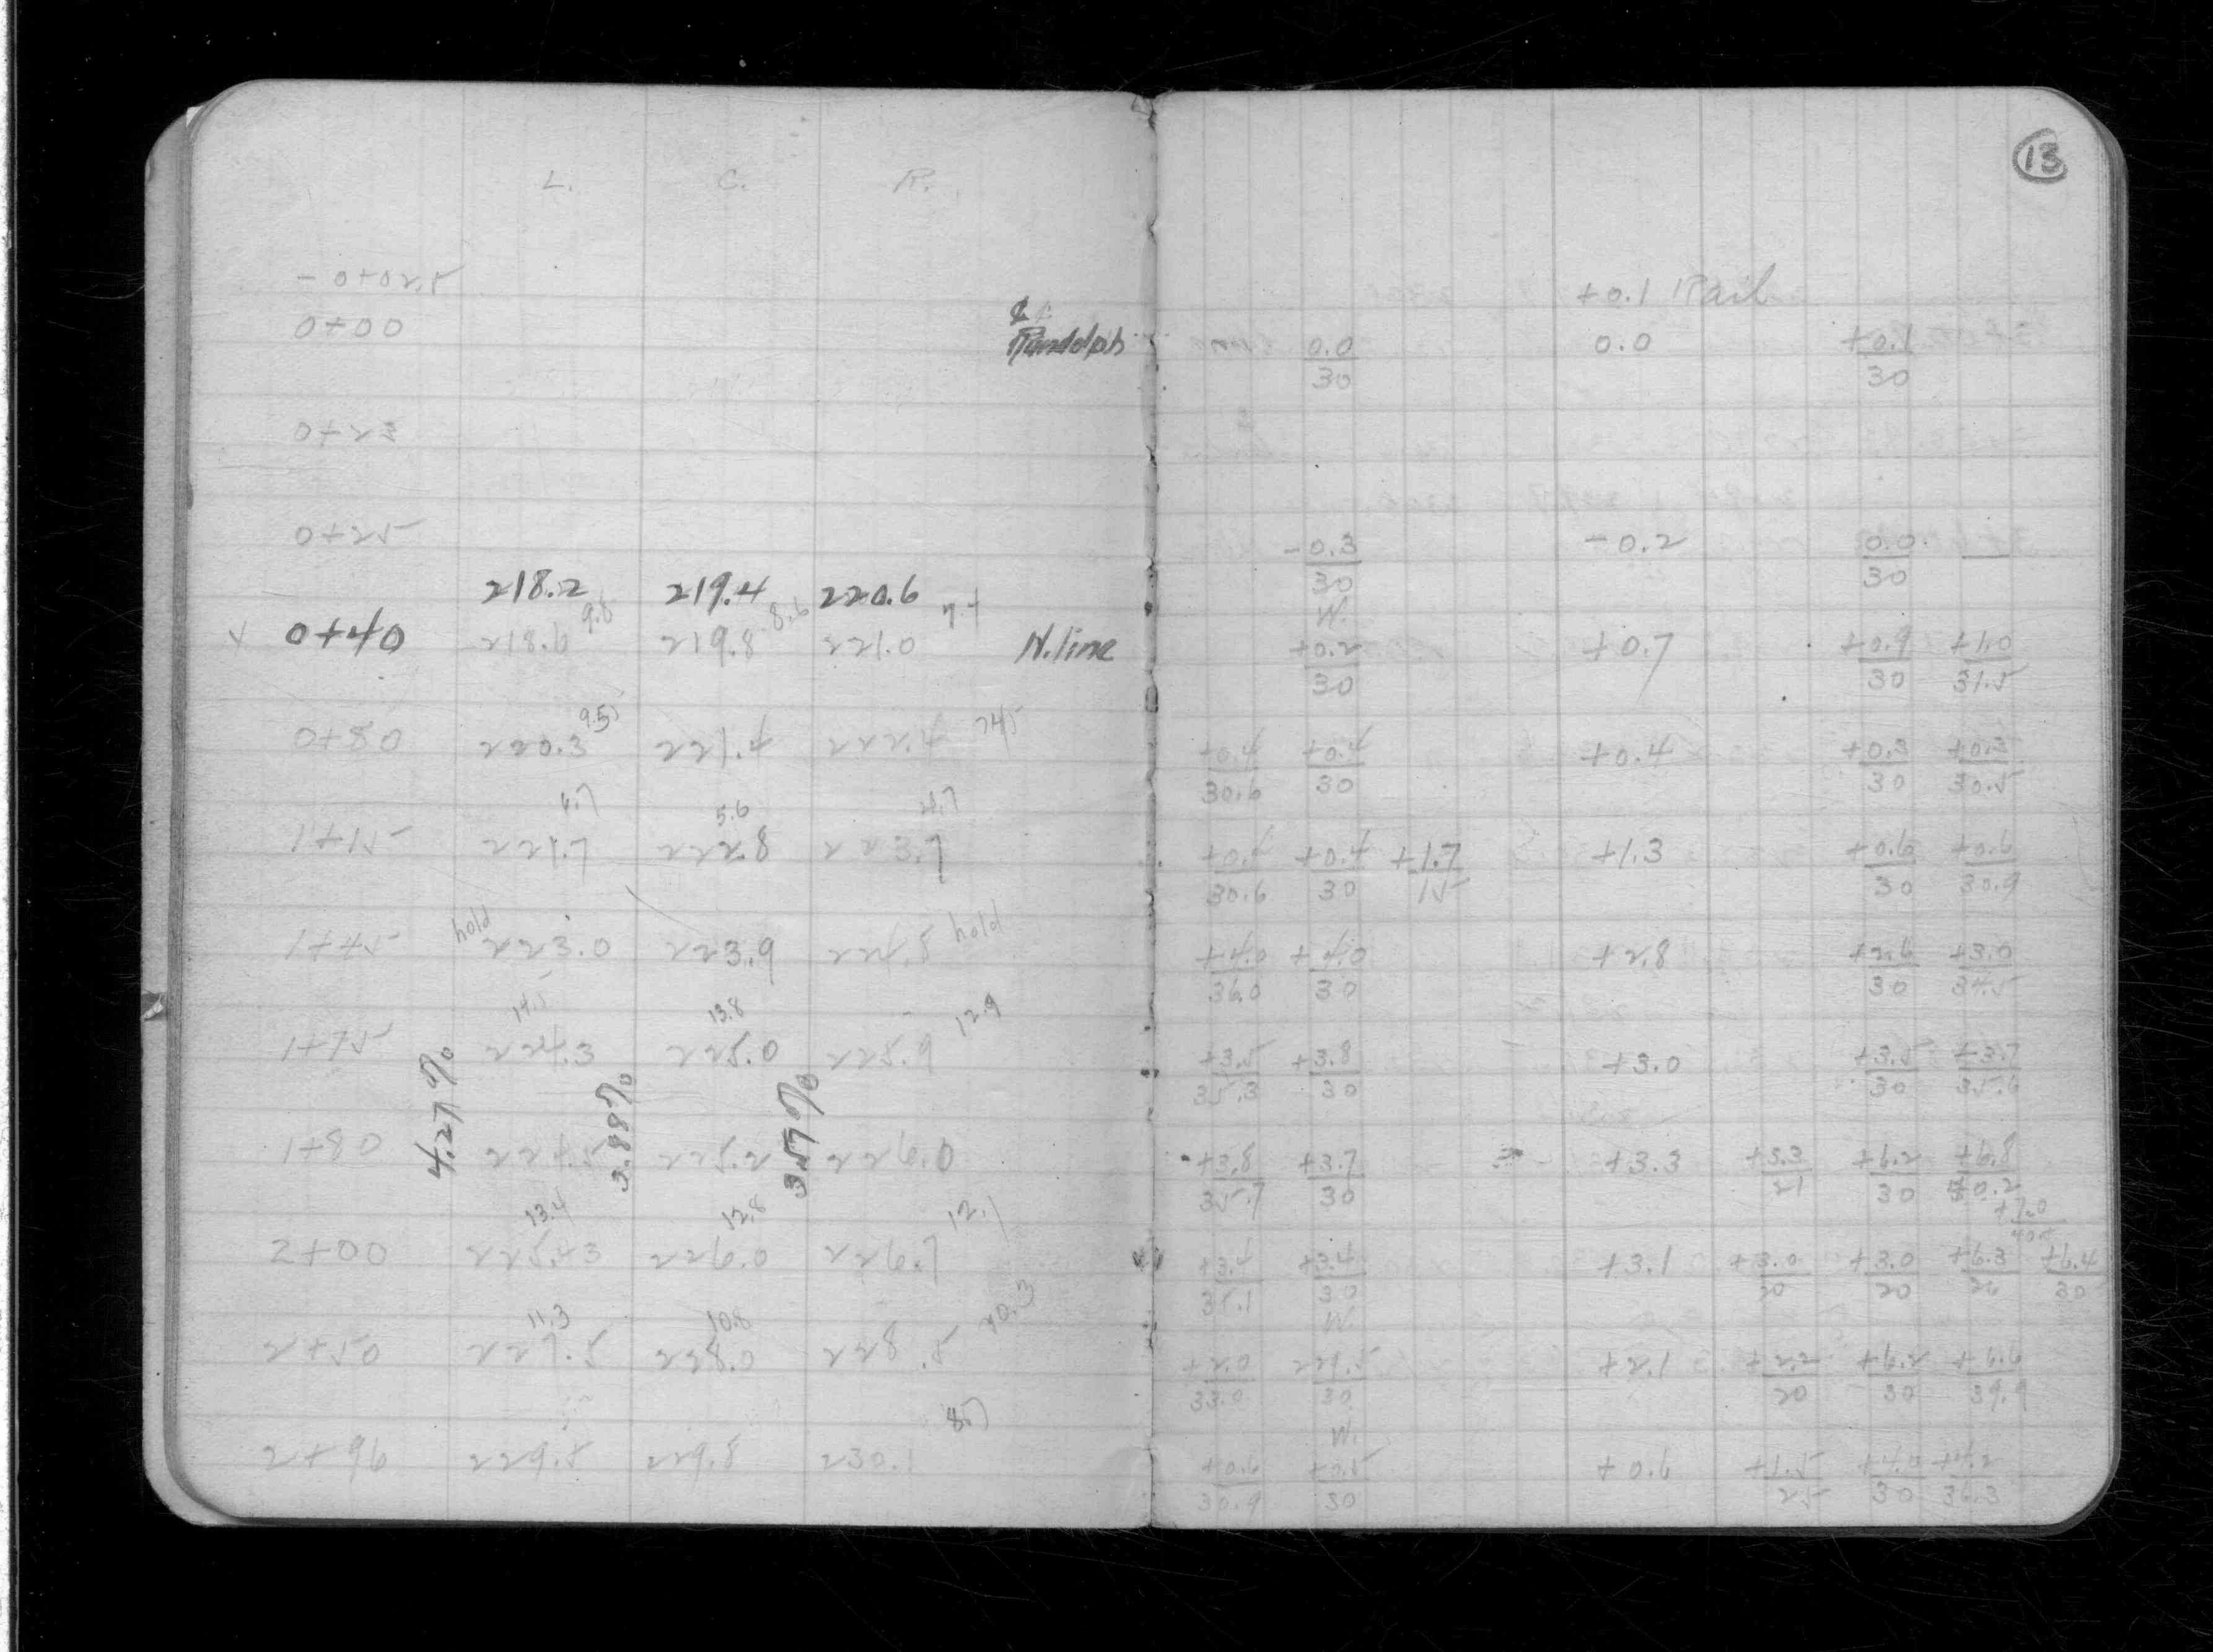 13
L. C. R.
- 0+02.5
+0.1 Rail
0+00
℄
Randolph
0.0/30 0.0 +0.1/30
0+23
0+25 -0.3/30 -0.2 0.0/30 —
218.2 219.4 220.6
9.8 8.6 7.4
W.
0+40 218.6 219.8 221.0 N. line +0.2/30 +0.7 +0.9/30 +1.0/31.5
9.5 7.45
0+80 220.3 221.4 222.4 +0.4/30.6 +0.4/30 +0.4 +0.3/30 +0.3/30.5
6.7 5.6 4.7
1+15 221.7 222.8 223.7 +0.4/30.6 +0.4/30 +1.7/15 +1.3 +0.6/30 +0.6/30.9
1+45 hold 223.0 223.9 224.8 hold +4.0/36.0 +4.0/30 +2.8 +2.6/30 +3.0/34.5
14.5 13.8 12.9
1+75 224.3 225.0 225.9 +3.5/35.3 +3.8/30 +3.0 +3.5/30 +3.7/35.6
4.27% 3.88% 3.57%
1+80 224.5 225.2 226.0 +3.8/35.7 +3.7/30 +3.3 +3.3/21 +6.2/30 +6.8/40.2
13.4 12.8 12.1
+7.0
2+00 225.43 226.0 226.7 +3.4/35.1 +3.4/30 +3.1 +3.0/20 +3.0/20 +6.3 +6.4/30
11.3 10.8 10.3
W.
2+50 227.5 228.0 228.5 +2.0/33.0 /30 +2.1 +2.2/20 +6.2/30 +6.6/39.9
8.7
W.
2+96 229.5 229.8 230.1 +0.6/30.9 +0.5/30 +0.6 +1.5/25 +4.0/30 +4.2/36.3